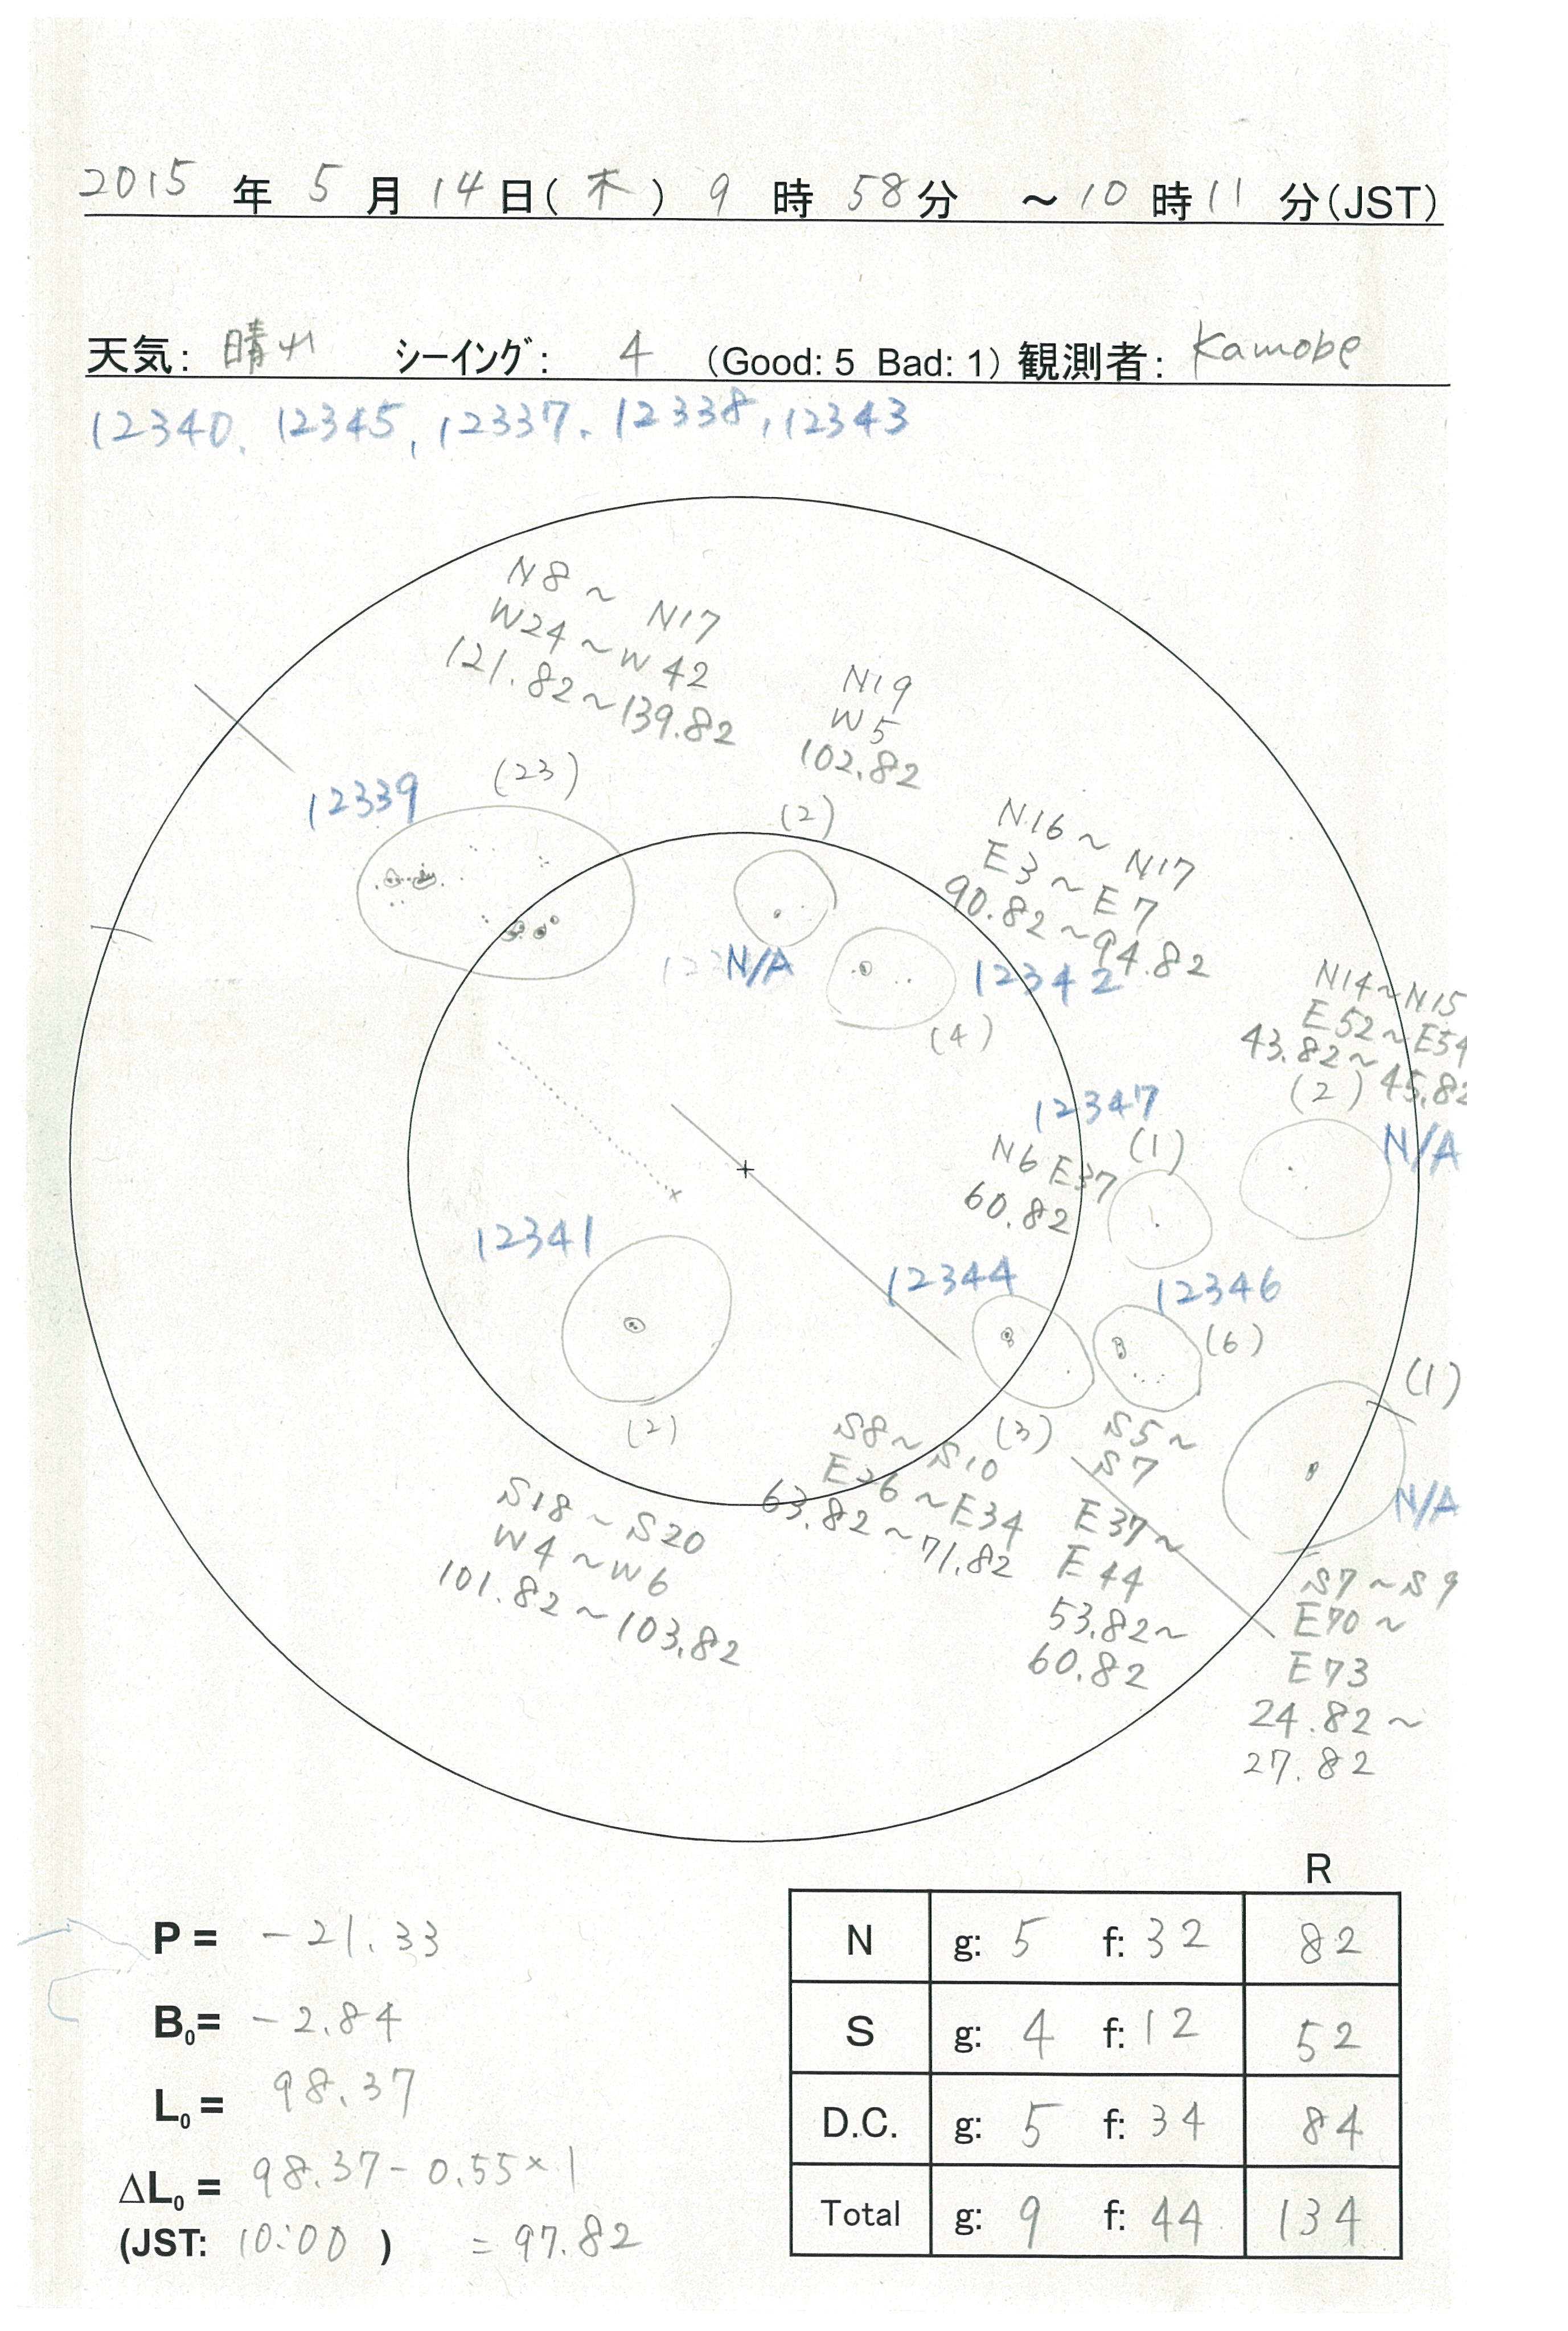 2015 年 5 月 14 日(木) 9 時 58 分 ～10 時 11 分(JST)
天気: 晴れ シーイング: 4 (Good: 5 Bad: 1) 観測者: Kamobe
12340, 12345, 12337, 12338, 12343
N8～N17
W24～W42
121.82～139.82
(23)
12339
N19
W5
102.82
(2)
N/A
N16～N17
E3～E7
90.82～94.82
12342
(4)
N14～N15
E52～E54
43.82～45.82
(2)
N/A
12347
(1)
N6 E37
60.82
12341
(2)
S18～S20
W4～W6
101.82～103.82
12344
(3)
S8～S10
E26～E34
63.82～71.82
12346
(6)
S5～
S7
E37～
E44
53.82～
60.82
(1)
N/A
S7～S9
E70～
E73
24.82～
27.82
P = -21.33
B₀= -2.84
L₀= 98.37
ΔL₀= 98.37-0.55×1
(JST: 10:00 ) = 97.82
R
N g: 5 f: 32 82
S g: 4 f: 12 52
D.C. g: 5 f: 34 84
Total g: 9 f: 44 134